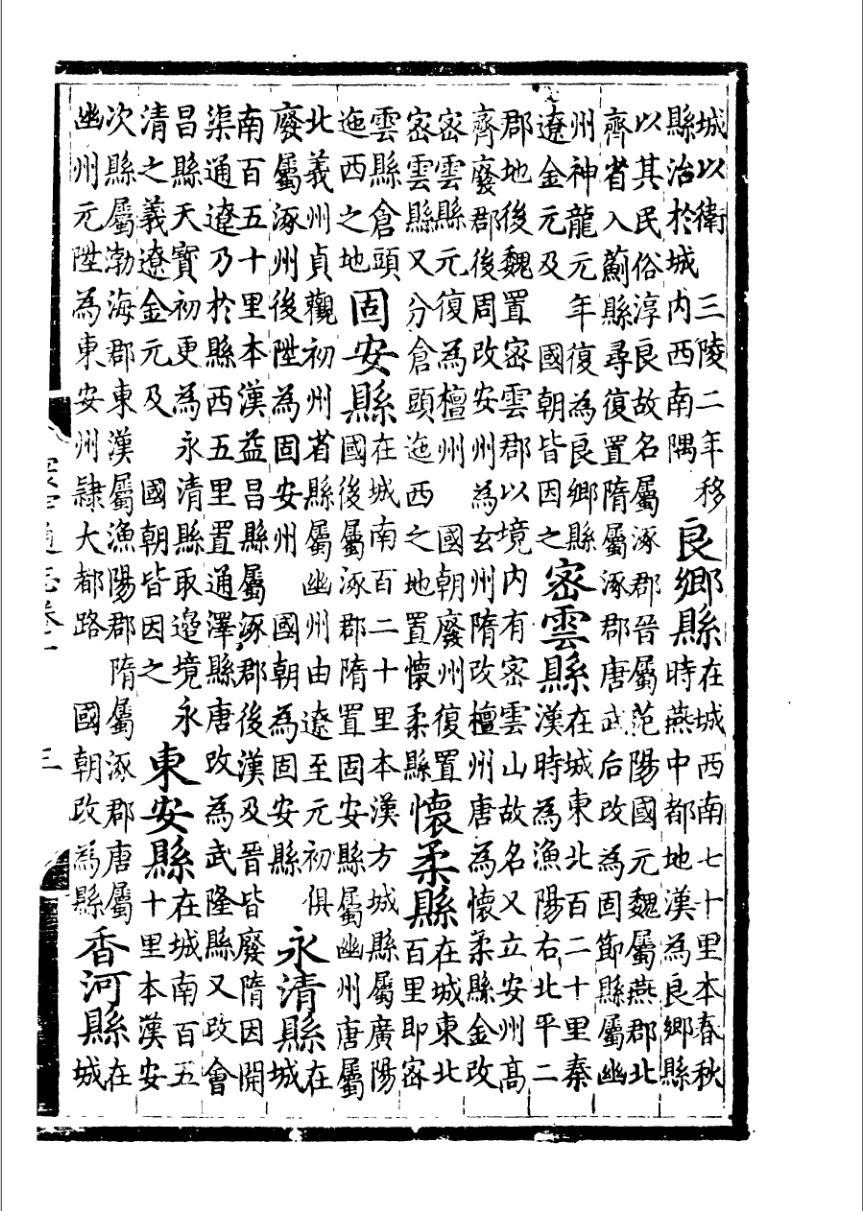 城以衛　三陵二年移
縣治於城內西南隅
良鄉縣
在城西南七十里本春秋
時燕中都地漢為良鄉縣
以其民俗淳良故名屬涿郡晉屬范陽國元魏屬燕郡北
齊省入薊縣尋復置隋屬涿郡唐武后改為固節縣屬幽
州神龍元年復為良鄉縣
遼金元及　國朝皆因之
密雲縣
在城東北百二十里秦
漢時為漁陽右北平二
郡地後魏置密雲郡以境內有密雲山故名又立安州高
齊廢郡後周改安州為玄州隋改檀州唐為懷柔縣金改
密雲縣元復為檀州　國朝廢州復置
密雲縣又分倉頭迤西之地置懷柔縣
懷柔縣
在城東北
百里即密
雲縣倉頭
迤西之地
固安縣
在城南百二十里本漢方城縣屬廣陽
國後屬涿郡隋置固安縣屬幽州唐屬
北義州貞觀初州省縣屬幽州由遼至元初俱
廢屬涿州後陞為固安州　國朝為固安縣
永清縣
在
城
南百五十里本漢益昌縣屬涿郡後漢及晉皆廢隋因開
渠通遼乃於縣西五里置通澤縣唐改為武隆縣又改會
昌縣天寶初更為永清縣取邊境永
清之義遼金元及　國朝皆因之
東安縣
在城南百五
十里本漢安
次縣屬渤海郡東漢屬漁陽郡隋屬涿郡唐屬
幽州元陞為東安州隸大都路　國朝改為縣
香河縣
在
城
三